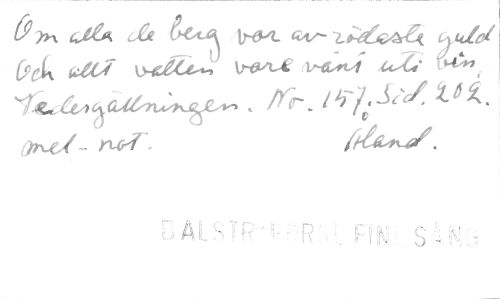 Om alla de berg vor av rödaste guld
Och allt vatten vore vänt uti vin,
Vedergällningen. No. 157. Sid. 202.
mel-not. Åland.
DALSTR FINL SÅNG